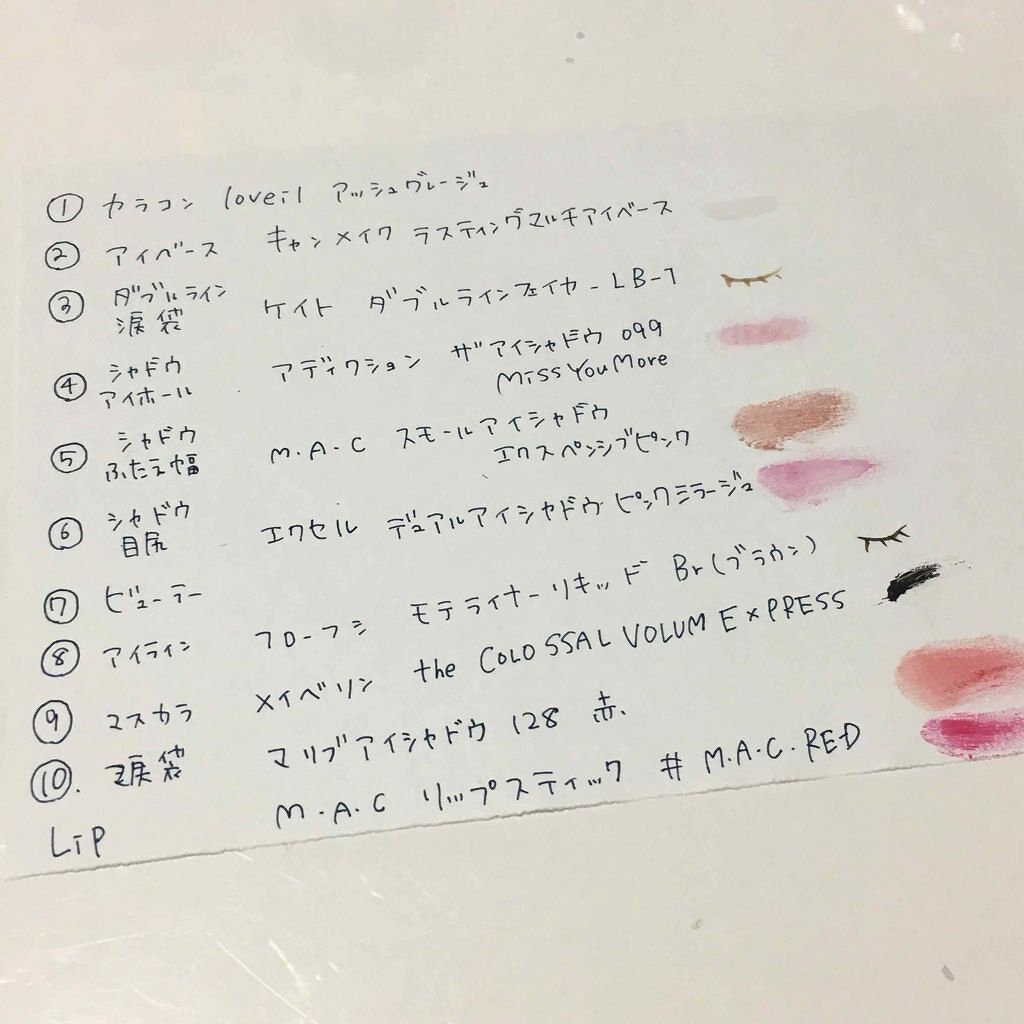 ① カラコン loveil アッシュグレージュ
② アイベース キャンメイク ラスティングマルチアイベース
③ ダブルライン 涙袋 ケイト ダブルラインフェイカー LB-1
④ シャドウ アイホール アディクション ザアイシャドウ 099
Miss You More
⑤ シャドウ ふたえ幅 M.A.C スモールアイシャドウ
エクスペンシブピンク
⑥ シャドウ 目尻 エクセル デュアルアイシャドウ ピンクミラージュ
⑦ ビューラー
⑧ アイライン フローフシ モテライナーリキッド Br(ブラウン)
⑨ マスカラ メイベリン the COLOSSAL VOLUM EXPRESS
⑩. 涙袋 マリブアイシャドウ 128 赤.
Lip M.A.C リップスティック # M.A.C.RED